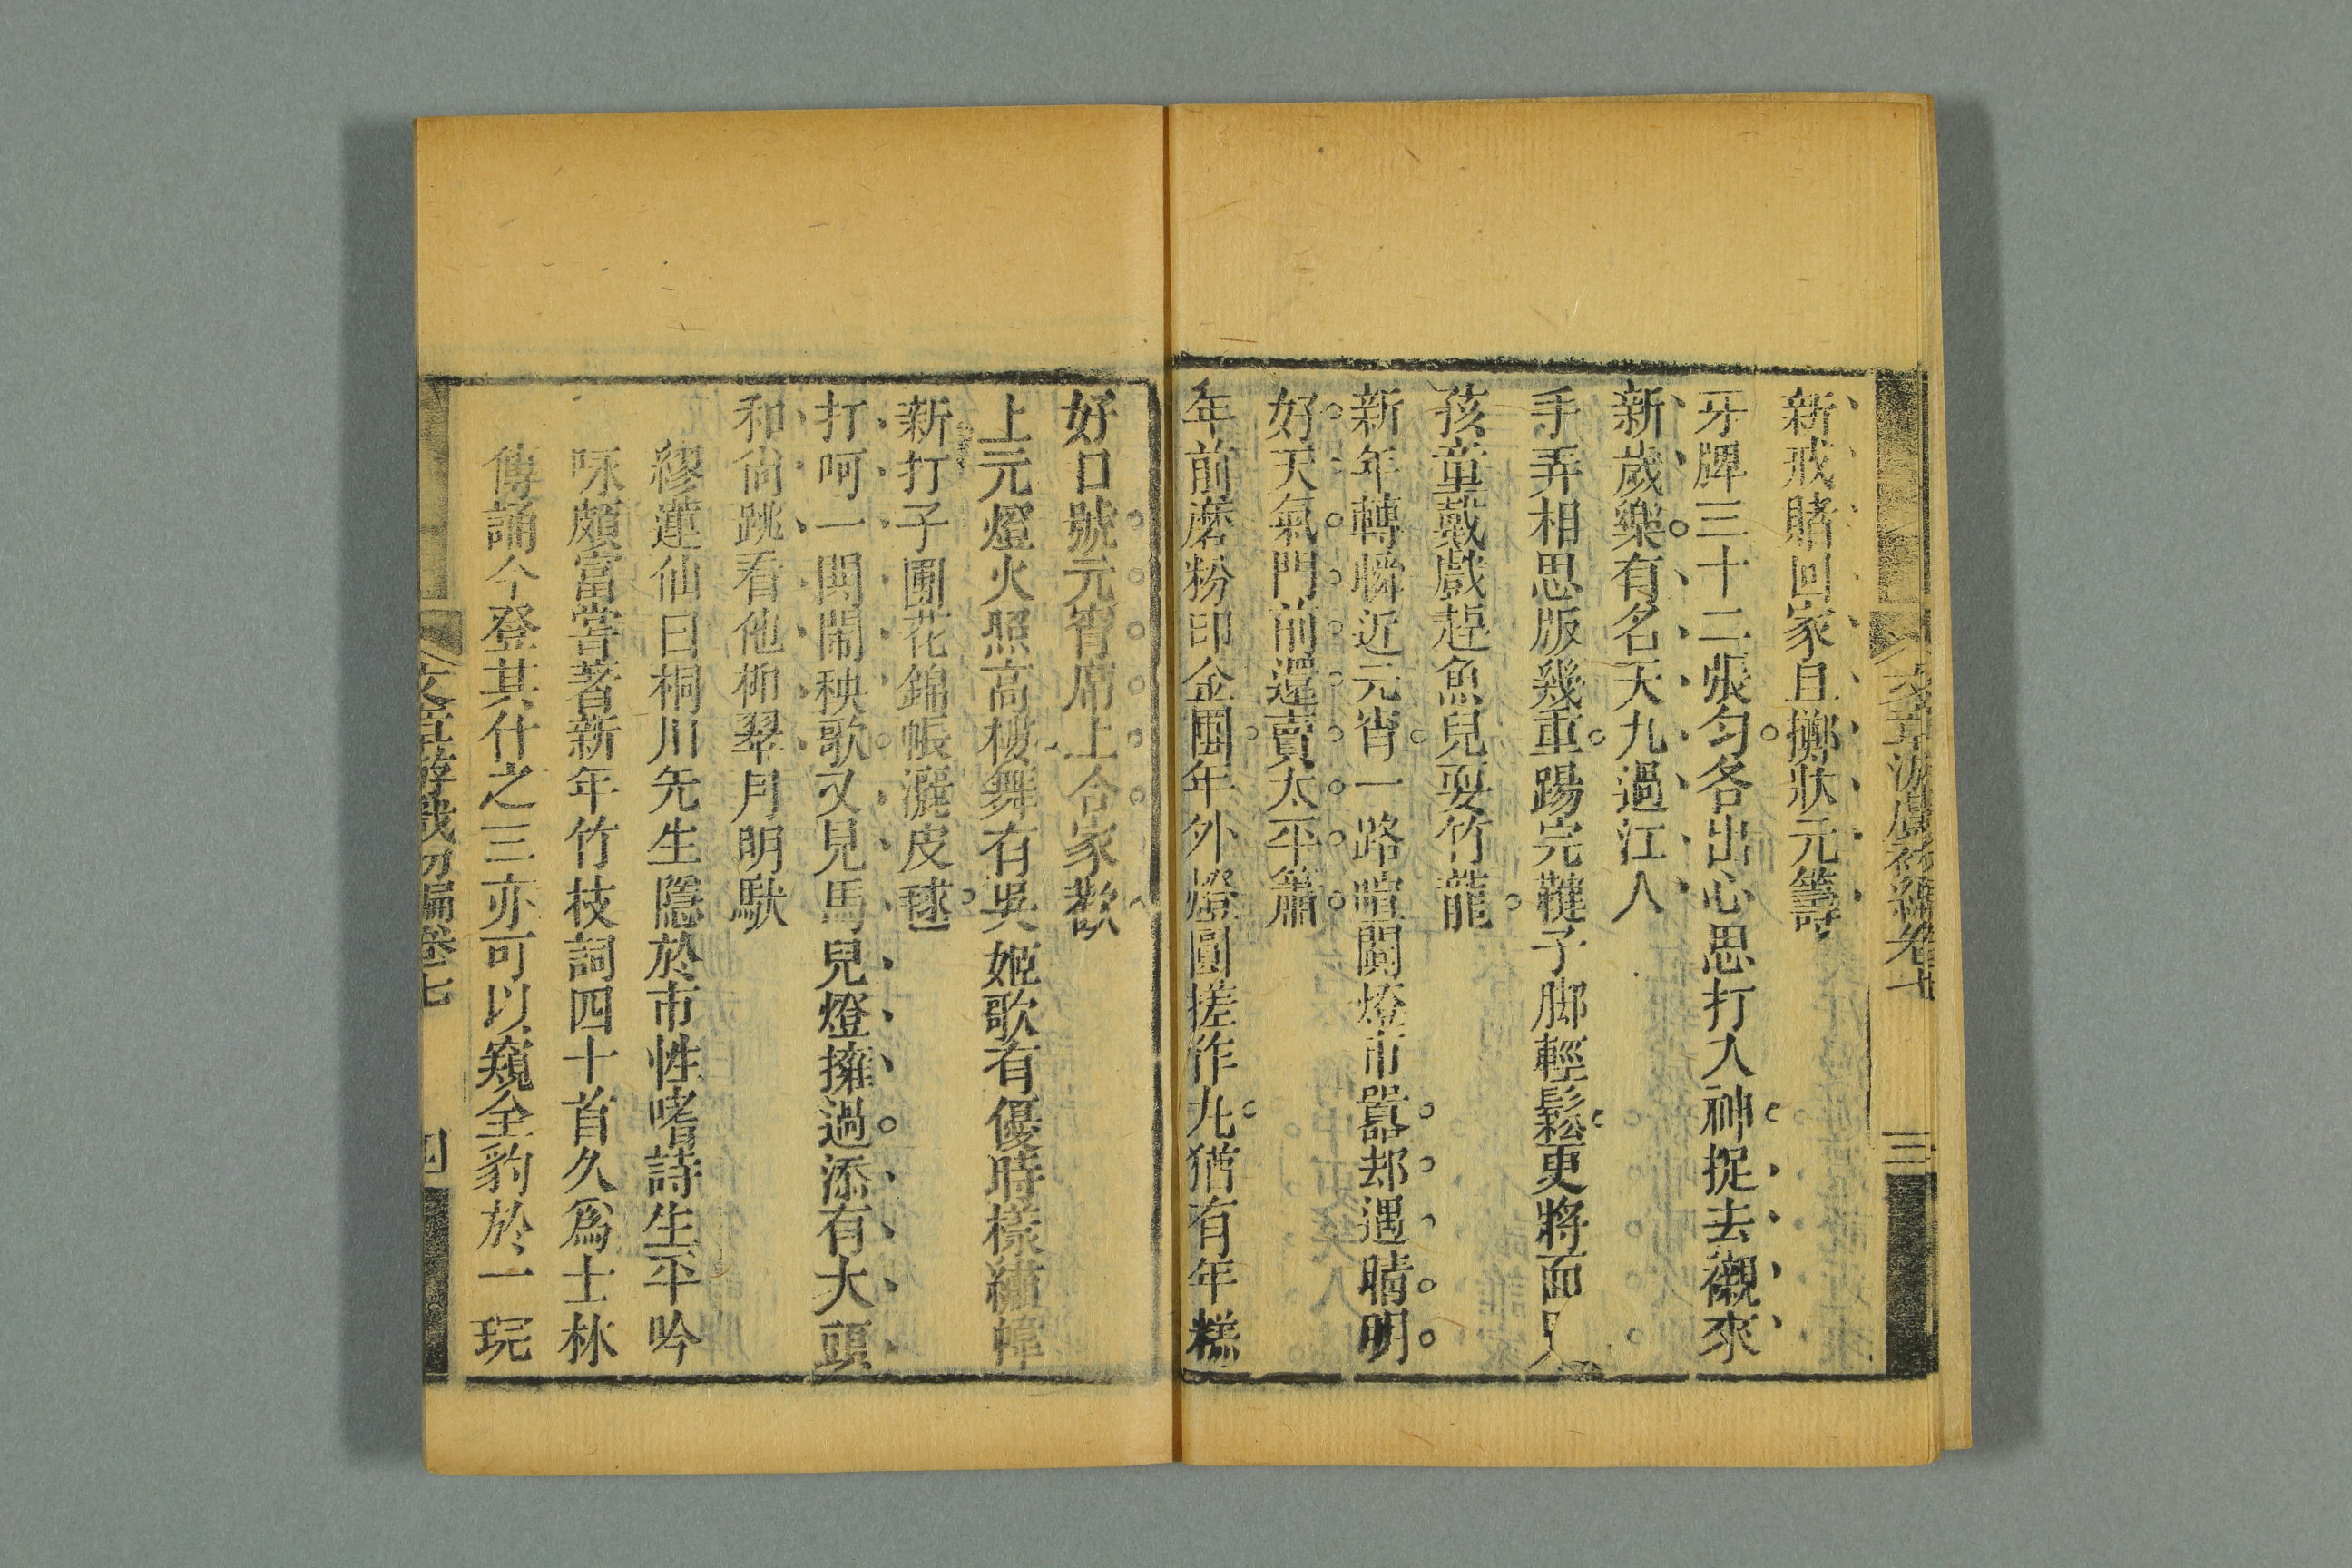 新戒賭回家且擲狀元籌
牙牌三十二張匀各出心思打入神捉去襯來
新歲樂有名天九過江人
手弄相思版幾重踢完鞬子脚輕鬆更將面
孩童戴戲趕魚兒耍竹龍
新年轉瞬近元宵一路喧闐燈市囂却遇晴明
好天氣門前還賣太平簫
年前磨粉印金團年外燈圓搓作丸猶有年糕
好口號元宵席上合家歡
上元燈火照高樓舞有吳姬歌有優時樣繡幃
新打子團花錦帳灑皮毬
打呵一闋鬧秧歌又見馬兒燈擁過添有大頭
和尚跳看他柳翠月明馱
繆蓮仙曰桐川先生隱於市性嗜詩生平吟
咏頗富嘗著新年竹枝詞四十首久爲士林
傳誦今登其什之三亦可以窺全豹於一玩
文章游戲初編卷七
四
三